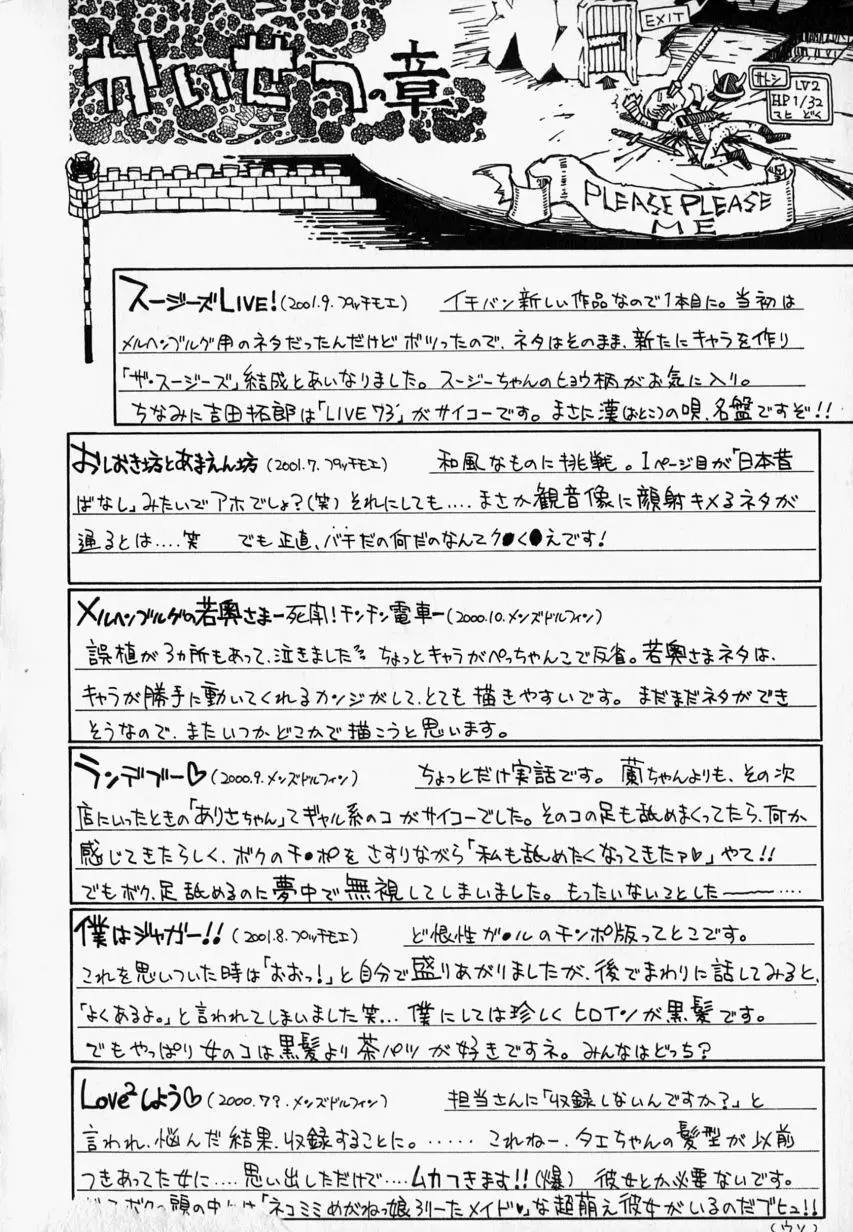 かいせつの章
EXIT
サトシ LV2
HP 1/32
マヒ どく
PLEASE PLEASE
ME
スージーズLIVE!(2001.9.プッチモエ) イチバン新しい作品なので1本目に。当初は
メルヘンブルグ用のネタだったんだけどボツったので、ネタはそのまま、新たにキャラを作り
「ザ・スージーズ」結成とあいなりました。スージーちゃんのヒョウ柄がお気に入り。
ちなみに吉田拓郎は「LIVE'73」がサイコーです。まさに漢(おとこ)の唄、名盤ですぞ!!
おしおき坊とあまえん坊(2001.7.プッチモエ) 和風なものに挑戦。1ページ目が「日本昔
ばなし」みたいでアホでしょ?(笑) それにしても‥‥まさか観音像に顔射キメるネタが
通るとは‥‥笑 でも正直、バチだの何だのなんてク●く●えです!
メルヘンブルグの若奥さまー死闘!チンチン電車ー(2000.10.メンズドルフィン)
誤植が3ヵ所もあって、泣きました ちょっとキャラがぺっちゃんこで反省。若奥さまネタは、
キャラが勝手に動いてくれるカンジがして、とても描きやすいです。まだまだネタができ
そうなので、またいつかどこかで描こうと思います。
ランデブー♡(2000.9.メンズドルフィン) ちょっとだけ実話です。蘭ちゃんよりも、その次
店にいったときの「ありさちゃん」てギャル系のコがサイコーでした。そのコの足も舐めまくってたら、何か
感じてきたらしく、ボクのチ●ポをさすりながら「私も舐めたくなってきたァ♥」やて!!
でもボク、足舐めるのに夢中で無視してしまいました。もったいないことした〜‥‥
僕はジャガー!!(2001.8.プッチモエ) ど根性ガ●ルのチンポ版ってとこです。
これを思いついた時は「おおっ!」と自分で盛りあがりましたが、後でまわりに話してみると、
「よくあるよ。」と言われてしまいました笑… 僕にしては珍しくヒロインが黒髪です。
でもやっぱり女のコは黒髪より茶パツが好きですネ。みんなはどっち?
Love²しよう♡(2000.7?.メンズドルフィン) 担当さんに「収録しないんですか?」と
言われ、悩んだ結果、収録することに。‥‥‥ これねー、タエちゃんの髪型が以前
つきあってた女に‥‥思い出しただけで‥‥ムカつきます!!(爆) 彼女とか必要ないです。
ボクの頭の中には「ネコミミめがねっ娘ろりーたメイド♥」な超萌え彼女がいるのだブヒュ!!
(ウソ)